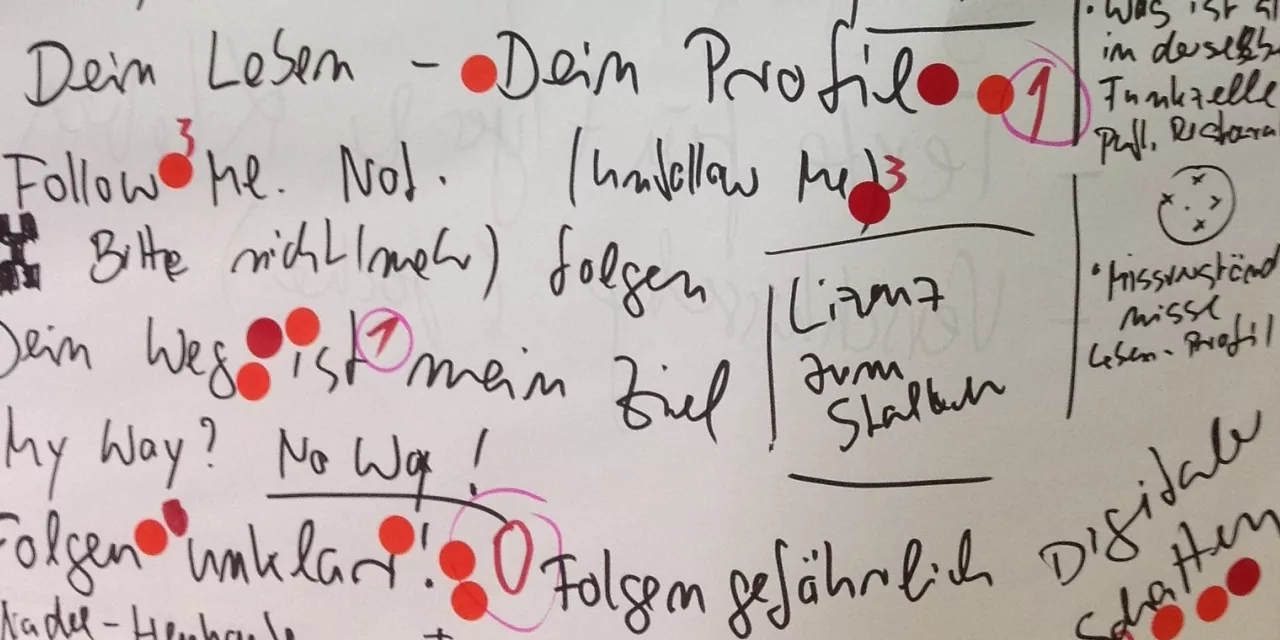 Dein Lesen - Dein Profil 1
Follow 3 Me. Not. (Unfollow Me) 3
Bitte nicht (mehr) folgen
Dein Weg ist 1 mein Ziel
My Way? No Way!
Folgen unklar! 0 Folgen gefährlich
Lizenz
zum
Stalken
• Was ist
in derselben
Funkzelle
• Missverständ
nisse
Lesen-Profil
Digitale
Schatten